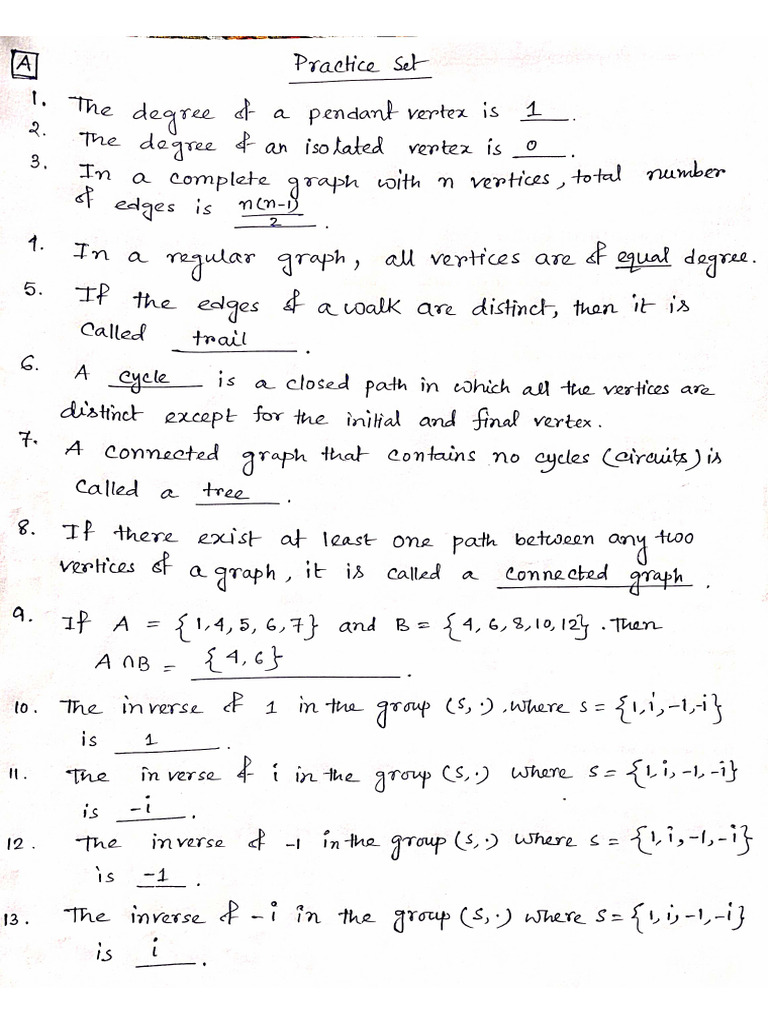 A
Practice Set
1. The degree of a pendant vertex is 1.
2. The degree of an isolated vertex is 0.
3. In a complete graph with n vertices, total number
of edges is n(n-1)/2.
4. In a regular graph, all vertices are of equal degree.
5. If the edges of a walk are distinct, then it is
called trail.
6. A cycle is a closed path in which all the vertices are
distinct except for the initial and final vertex.
7. A connected graph that contains no cycles (circuits) is
called a tree.
8. If there exist at least one path between any two
vertices of a graph, it is called a connected graph.
9. If A = {1,4,5,6,7} and B = {4,6,8,10,12}. Then
A ∩ B = {4,6}.
10. The inverse of 1 in the group (S,·), where S = {1,i,-1,-i}
is 1.
11. The inverse of i in the group (S,·) where S = {1,i,-1,-i}
is -i.
12. The inverse of -1 in the group (S,·) where S = {1,i,-1,-i}
is -1.
13. The inverse of -i in the group (S,·) where S = {1,i,-1,-i}
is i.